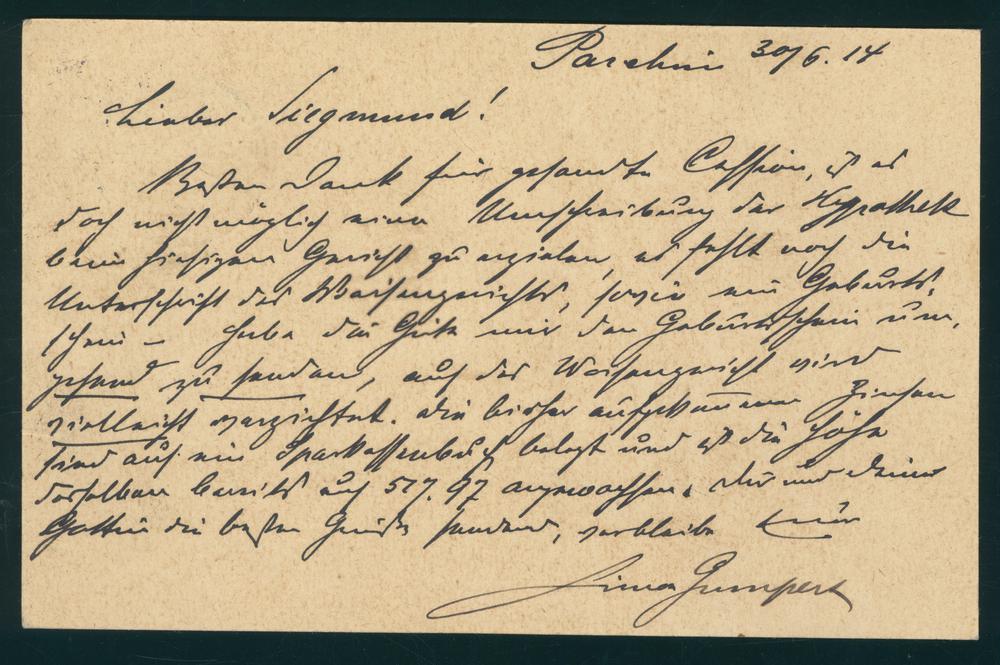 Parchim 30/6. 14
Lieber Siegmund!
Besten Dank für gesandte Cession, ist es
doch nicht möglich eine Umschreibung der Hypothek
beim hiesigen Gericht zu erzielen, es fehlt noch die
Unterschrift des Waisengerichts, sowie ein Geburts-
schein – habe die Güte mir den Geburtsschein um-
gehend zu senden, auf das Waisengericht wird
vielleicht verzichtet. Die bisher aufgekommenen Zinsen
sind auf ein Sparkassenbuch belegt und ist die Höhe
desselben bereits auf 517.97 angewachsen. Dir und Deiner
Gattin die besten Grüße sendend, verbleibe
Gumpert